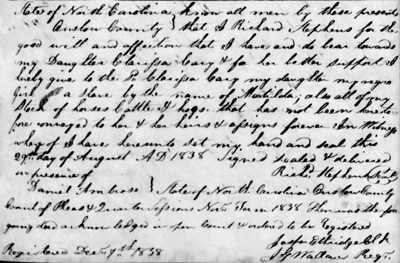 State of North Carolina, know all men by these presents
Onslow County } that I Richard Stephens for the
good will and affection that I have and do bear towards
my Daughter Clarissa Cary & for her better support I
freely give to the Sd Clarissa Cary my daughter my negro
Girl a slave by the name of Matilda; also all of my
Stock of horses Cattle & hogs that has not been hereto-
fore conveyed to her & her heirs & assigns forever In Witness
whereof I have hereunto set my hand and seal this
29th day of August A.D 1838 Signed sealed & delivered
in presence of Richd Stephens
Daniel Ambrose } State of North Carolina Onslow County
Court of Pleas & Quarter Sessions Novr Term 1838 Then was the fore
going deed acknowledged in open Court & ordered to be Registered
Jasper Etheridge Clk
Registered Decr 9th 1838 Wallace Regr.